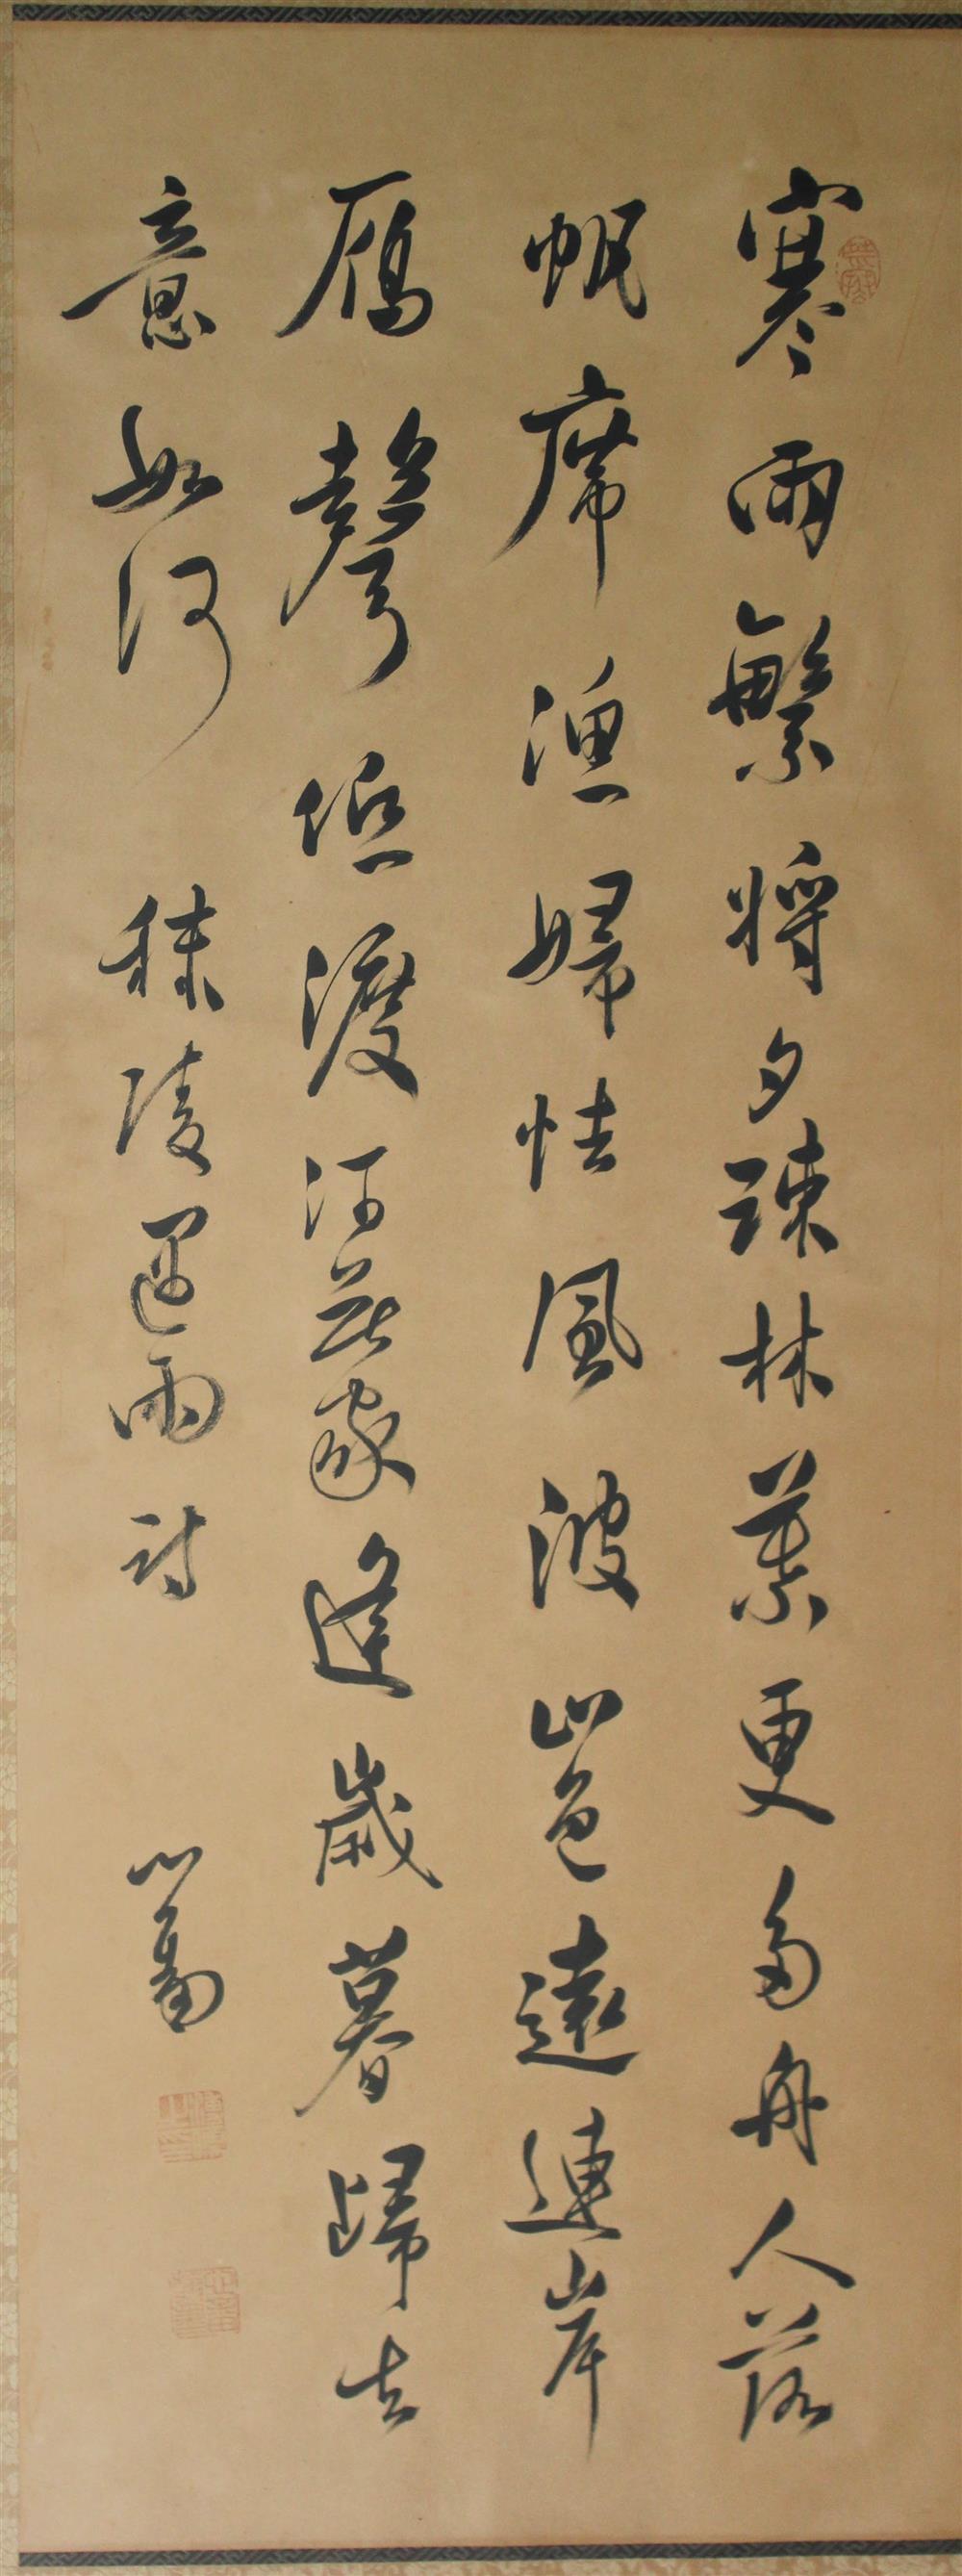 寒雨繁將夕疎林葉更多舟人落
帆席漁婦怯風波山色遠連岸
鴈聲低渡河無家逢歲暮歸去
意如何 秣陵遇雨詩
心畬